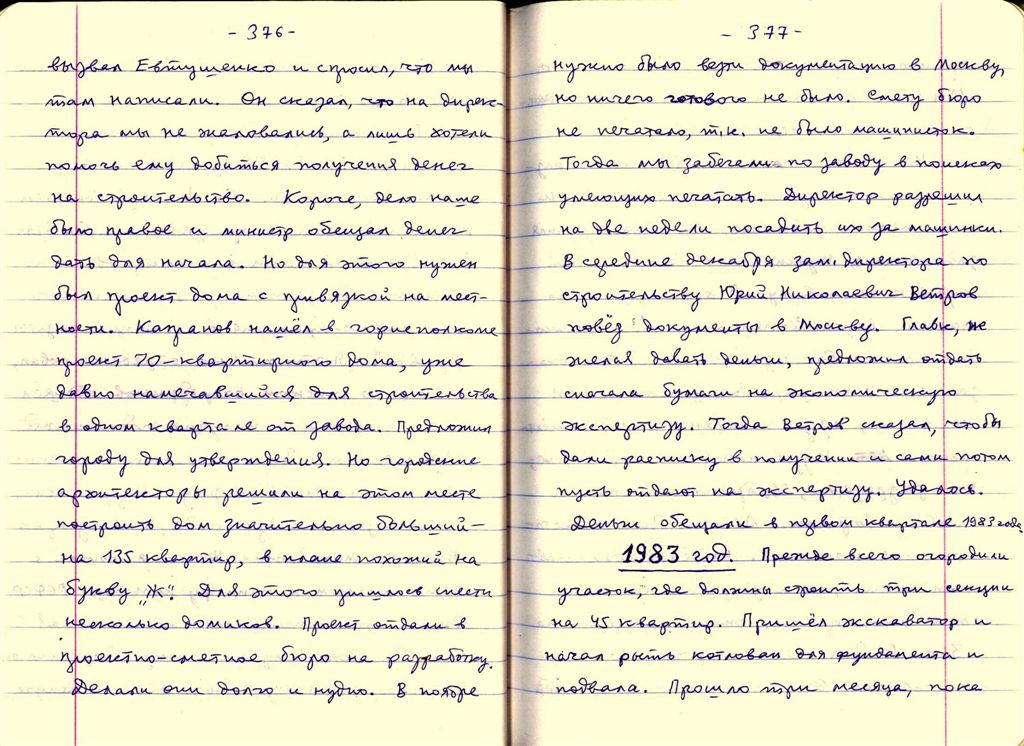 - 376 -
вызвал Евтушенко и спросил, что мы
там написали. Он сказал, что на дирек-
тора мы не жаловались, а лишь хотели
помочь ему добиться получения денег
на строительство. Короче, дело наше
было правое и министр обещал денег
дать для начала. Но для этого нужен
был проект дома с привязкой на мест-
ности. Капранов нашёл в горисполкоме
проект 70-квартирного дома, уже
давно намечавшийся для строительства
в одном квартале от завода. Предложил
городу для утверждения. Но городские
архитекторы решили на этом месте
построить дом значительно больший -
на 135 квартир, в плане похожий на
букву „Ж". Для этого пришлось снести
несколько домиков. Проект отдали в
проектно-сметное бюро на разработку.
Делали они долго и нудно. В ноябре
- 377 -
нужно было везти документацию в Москву,
но ничего готового не было. Смету бюро
не печатало, т.к. не было машинисток.
Тогда мы забегали по заводу в поисках
умеющих печатать. Директор разрешил
на две недели посадить их за машинки.
В середине декабря зам. директора по
строительству Юрий Николаевич Ветров
повёз документы в Москву. Главк, не
желая давать деньги, предложил отдать
сначала бумаги на экономическую
экспертизу. Тогда Ветров сказал, чтобы
дали расписку в получении и сами потом
пусть отдают на экспертизу. Удалось.
Деньги обещали в первом квартале 1983 года.
1983 год. Прежде всего огородили
участок, где должны строить три секции
на 45 квартир. Пришёл экскаватор и
начал рыть котлован для фундамента и
подвала. Прошло три месяца, пока